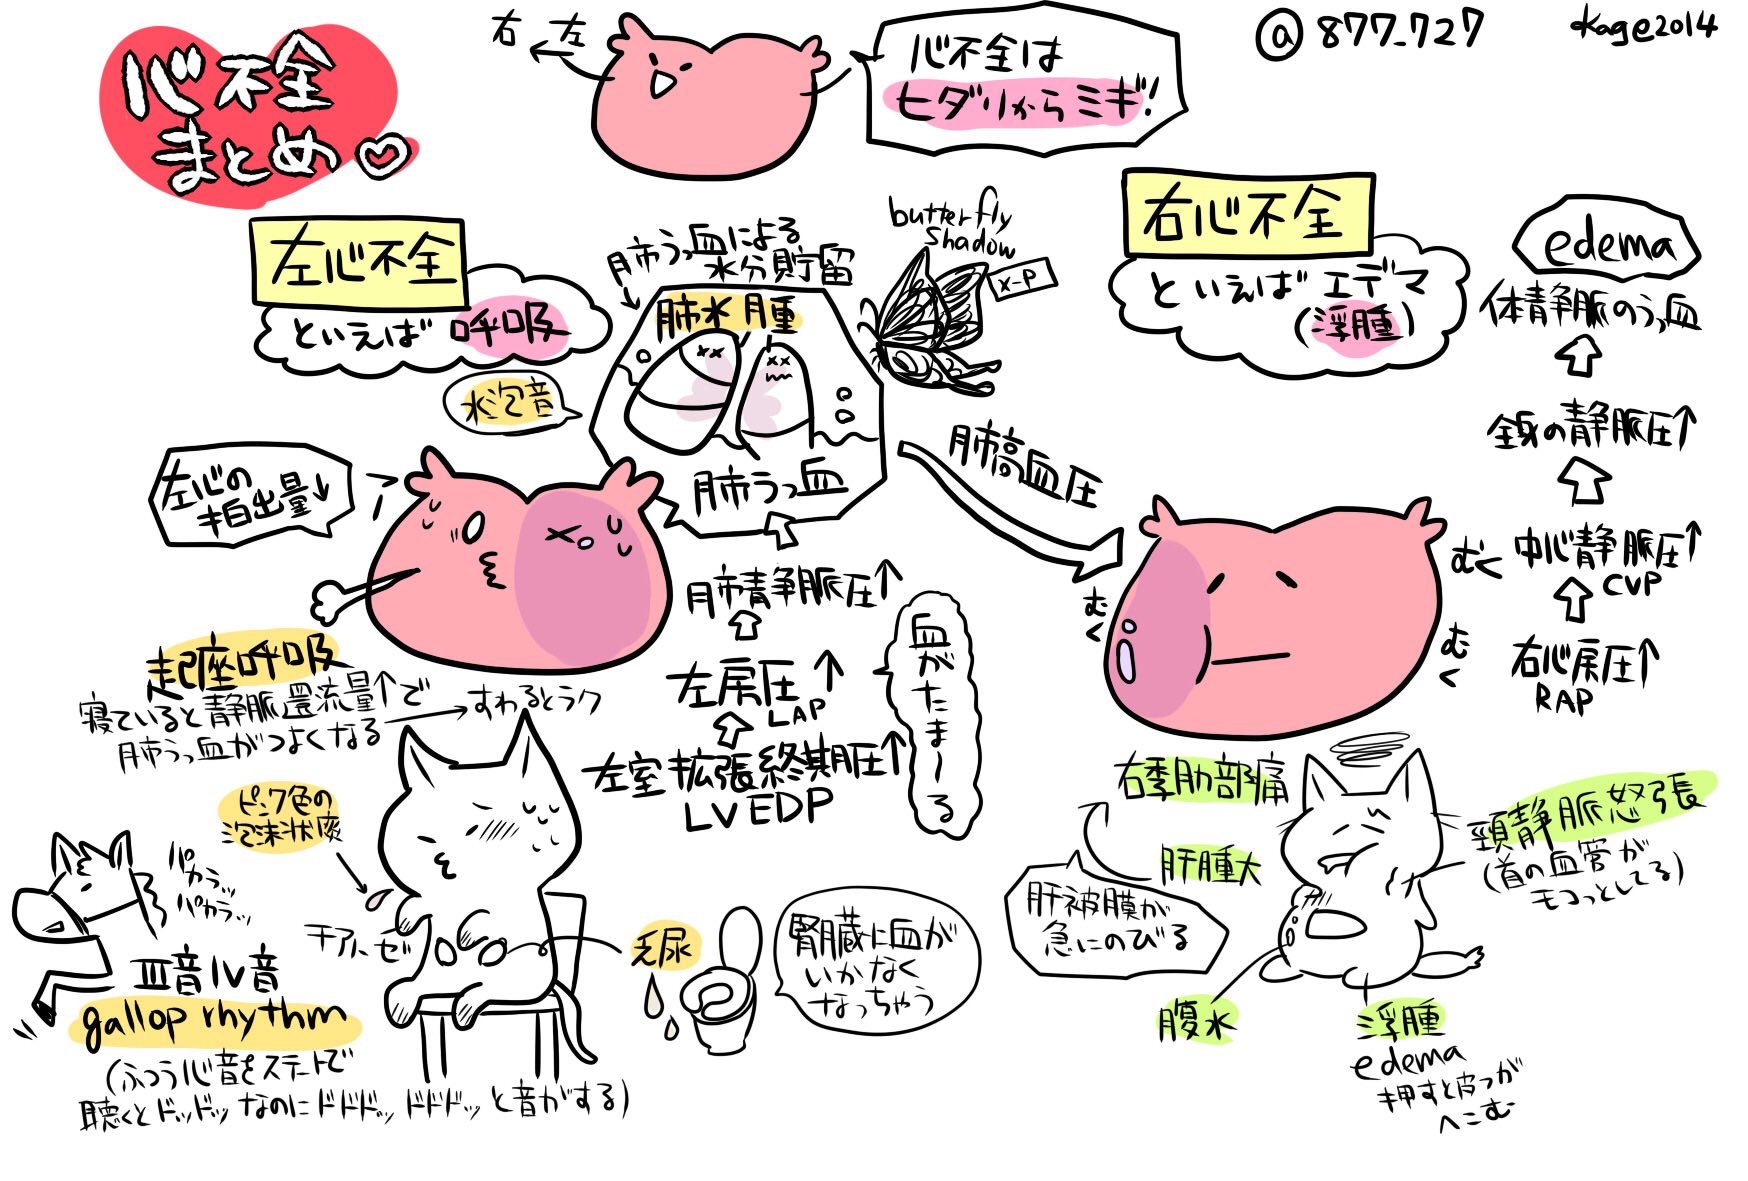 心不全
まとめ♡
右 左
心不全は
ヒダリからミギ!
@877_727
kage2014
左心不全
といえば 呼吸
水泡音
肺うっ血による
水分貯留
肺水腫
肺うっ血
butterfly
shadow
X-P
左心の
拍出量↓
肺静脈圧↑
左房圧↑
LAP
左室拡張終期圧↑
LVEDP
血がたま〜る
肺高血圧
右心不全
といえば エデマ
(浮腫)
edema
体静脈のうっ血
全身の静脈圧↑
中心静脈圧↑
CVP
右心房圧↑
RAP
むく
むく
むく
起座呼吸
寝ていると静脈還流量↑で
肺うっ血がつよくなる
→すわるとラク
ピンク色の
泡沫状痰
パカラッ
パカラッ
チアノーゼ
III音IV音
gallop rhythm
(ふつう心音をステートで
聴くとドッドッなのにドドドッ ドドドッと音がする)
乏尿
腎臓に血が
いかなく
なっちゃう
右季肋部痛
肝腫大
肝被膜が
急にのびる
頸静脈怒張
(首の血管が
モコっとしてる)
腹水
浮腫
edema
押すと皮フが
へこむ